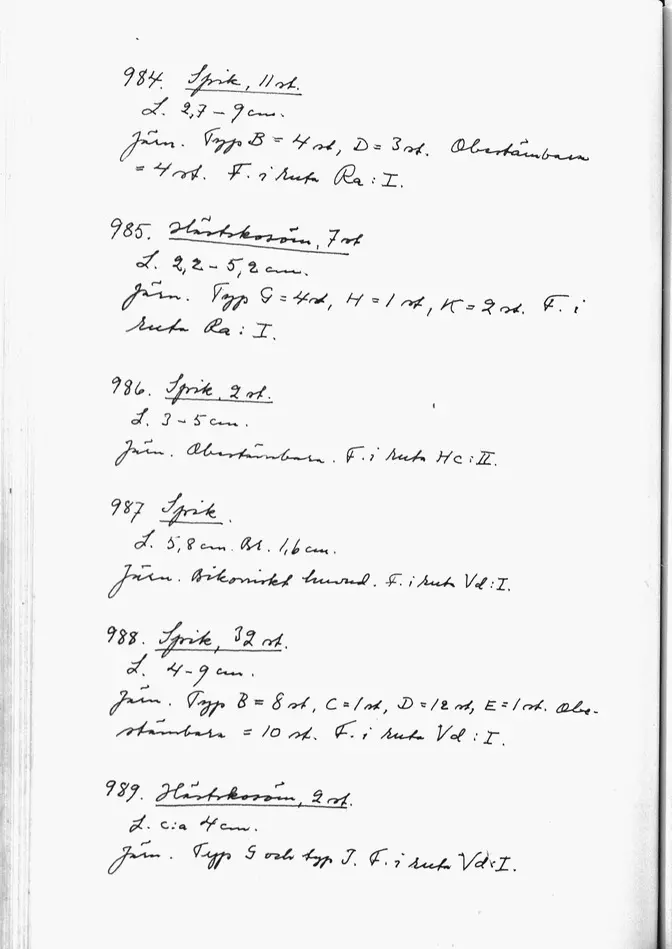 984. Spik, 11 st.
L. 2,7 - 9 cm.
Järn. Typ B = 4 st, D = 3 st. Obestämbara
= 4 st. F. i ruta Ra : I.
985. Hästskosöm, 7 st
L. 2,2 - 5,2 cm.
Järn. Typ G = 4 st, H = 1 st, K = 2 st. F. i
ruta Ra : I.
986. Spik, 2 st.
L. 3 - 5 cm.
Järn. Obestämbara. F. i ruta Hc : II.
987 Spik.
L. 5,8 cm. Br. 1,6 cm.
Järn. Bikoniskt huvud. F. i ruta Vd : I.
988. Spik, 32 st.
L. 4 - 9 cm.
Järn. Typ B = 8 st, C = 1 st, D = 12 st, E = 1 st. Obe-
stämbara = 10 st. F. i ruta Vd : I.
989. Hästskosöm, 2 st.
L. c:a 4 cm.
Järn. Typ G och typ J. F. i ruta Vd : I.